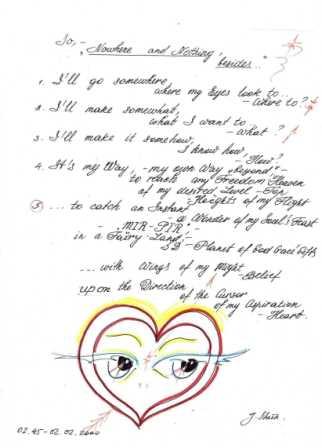 So, -
"Nowhere and Nothing,
besides.."
1. I'll go somewhere,
where my Eyes look to...
- Where to?
2. I'll make somewhat,
what I want to...
- What?
3. I'll make it somehow,
I know how,
- "How"?
4. It's my Way, - my own Way "beyond" -
to reach any Freedom Heaven
of my desired Level - Top
- Heights of my Flight
5 ... to catch an Instant
- a Wonder of my Soul's Trust
- "MIR-PIR" -
in a Fairy Land, -
- Planet of God
... with Wings of my Might
- Belief
upon the Direction
of the
of my Aspiration
- Heart
02.45-02.02.2000